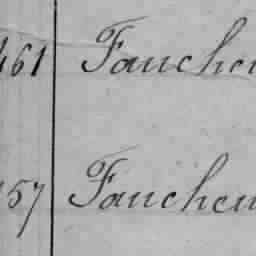 461 Fauche
57 Fauche